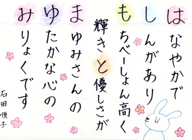 はなやかで
しんがあり
もちべーしょん高く
輝きと優しさが
まゆみさんの
ゆたかな心の
みりょくです
石田